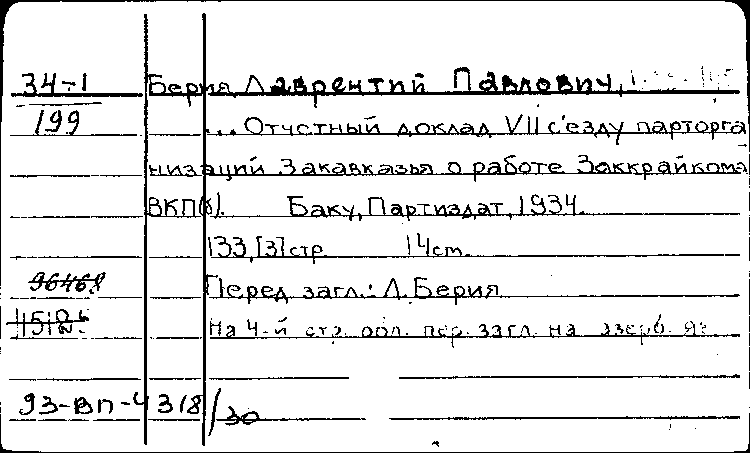 34-1 Берия, Лаврентий Павлович,
199 ... Отчетный доклад VII с'езду парторга
низаций Закавказья о работе Заккрайкома
ВКП(б). Баку, Партиздат, 1934.
133,[3] стр. 14 см.
96468 Перед загл.: Л. Берия
На 4-й стр. обл. пер. загл. на азерб. яз.
93-вп-4318/30